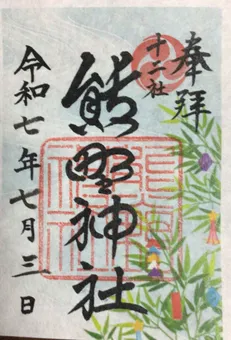 奉拝
十二社
熊野神社
令和七年七月三日